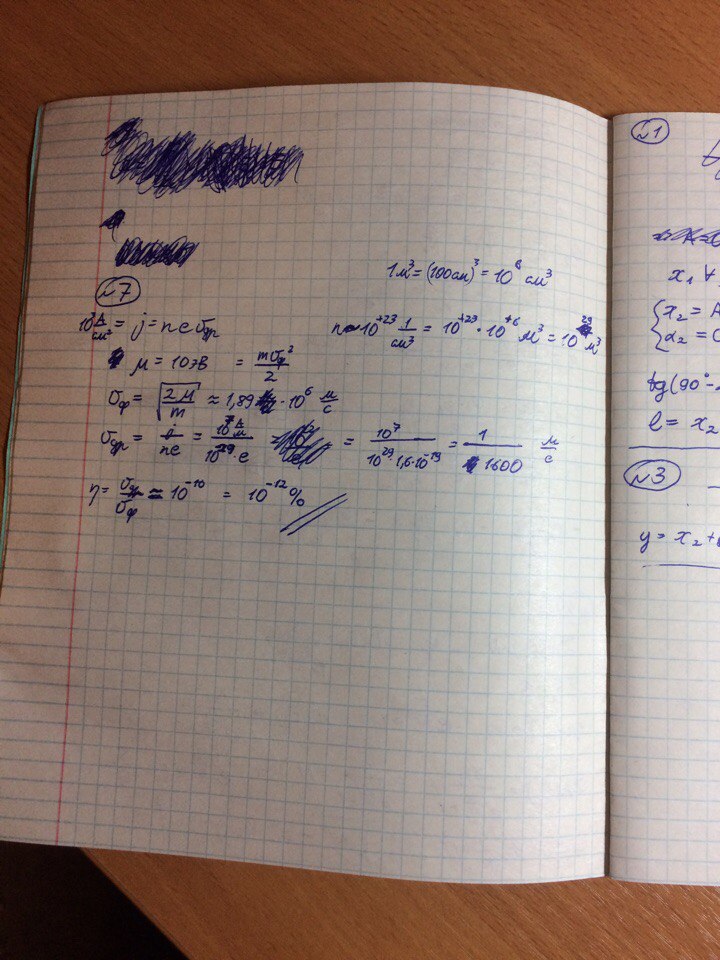 1м³ = (100см)³ = 10⁶ см³
№7
10³ А/см² = j = neσ_др
n ~ 10⁺²³ 1/см³ = 10⁺²³ · 10⁺⁶ м³ = 10²⁹ м³
μ = 10эВ = mσ_ф²/2
σ_ф = √(2μ/m) ≈ 1,89 · 10⁶ м/с
σ_др = j/ne = 10⁷ А/м / 10²⁹·e = = 10⁷ / 10²⁹·1,6·10⁻¹⁹ = 1/1600 м/с
η = σ_др/σ_ф ≈ 10⁻¹⁰ = 10⁻¹² %
№1
x₁
{x₂ = A
α₂ = 0
tg(90°-
l = x₂
№3
y = x₂ +